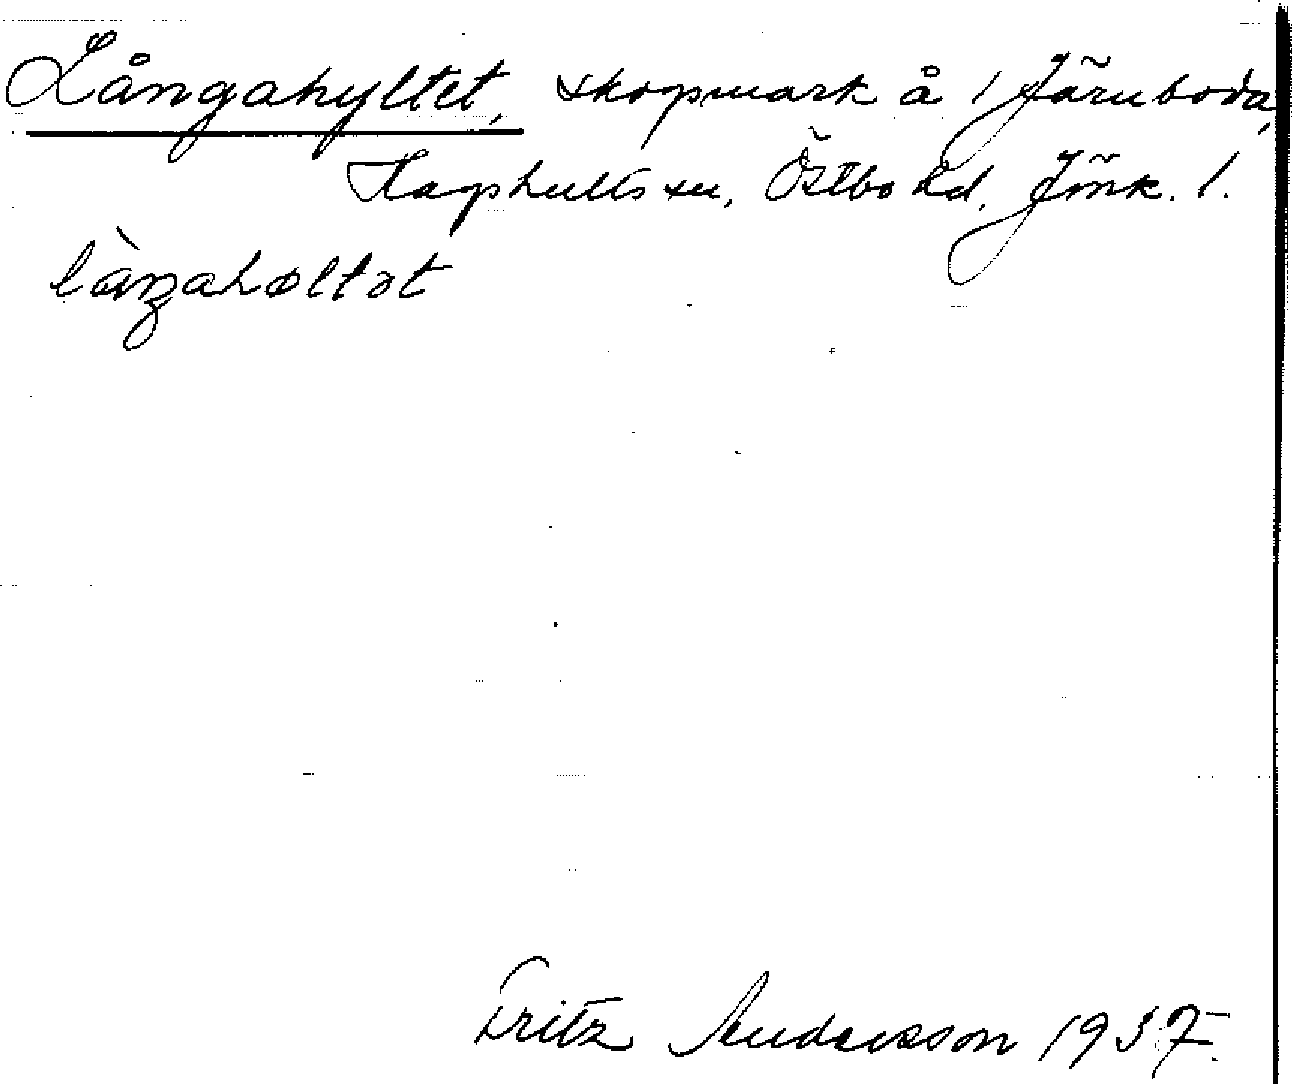 Långahyltet, skogsmark å 1 Järnboda,
Hagshults sn, Östbo hd. Jönk. l.
làŋahøltət
Fritz Andersson 1937.